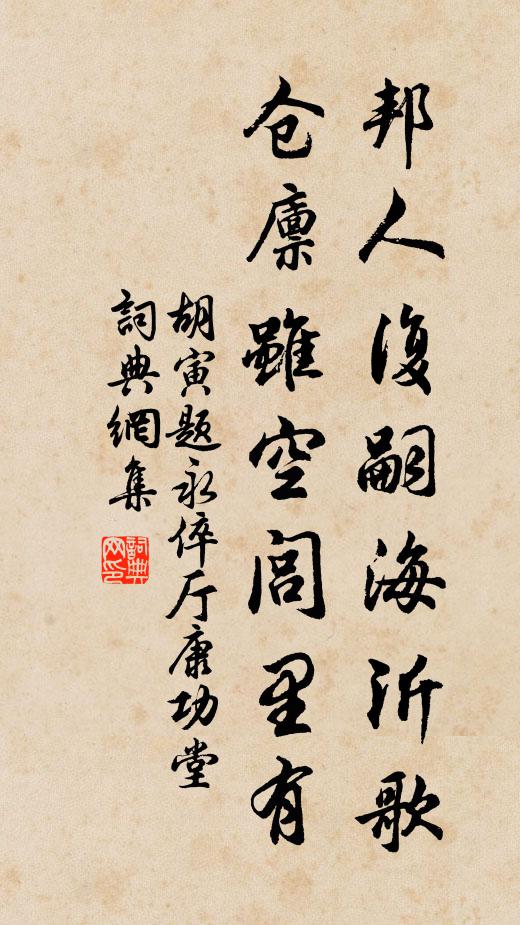 邦人復嗣海沂歌
仓廪雖空閭里有
胡寅题永倅厅康功堂
詞典網集
詞典网印